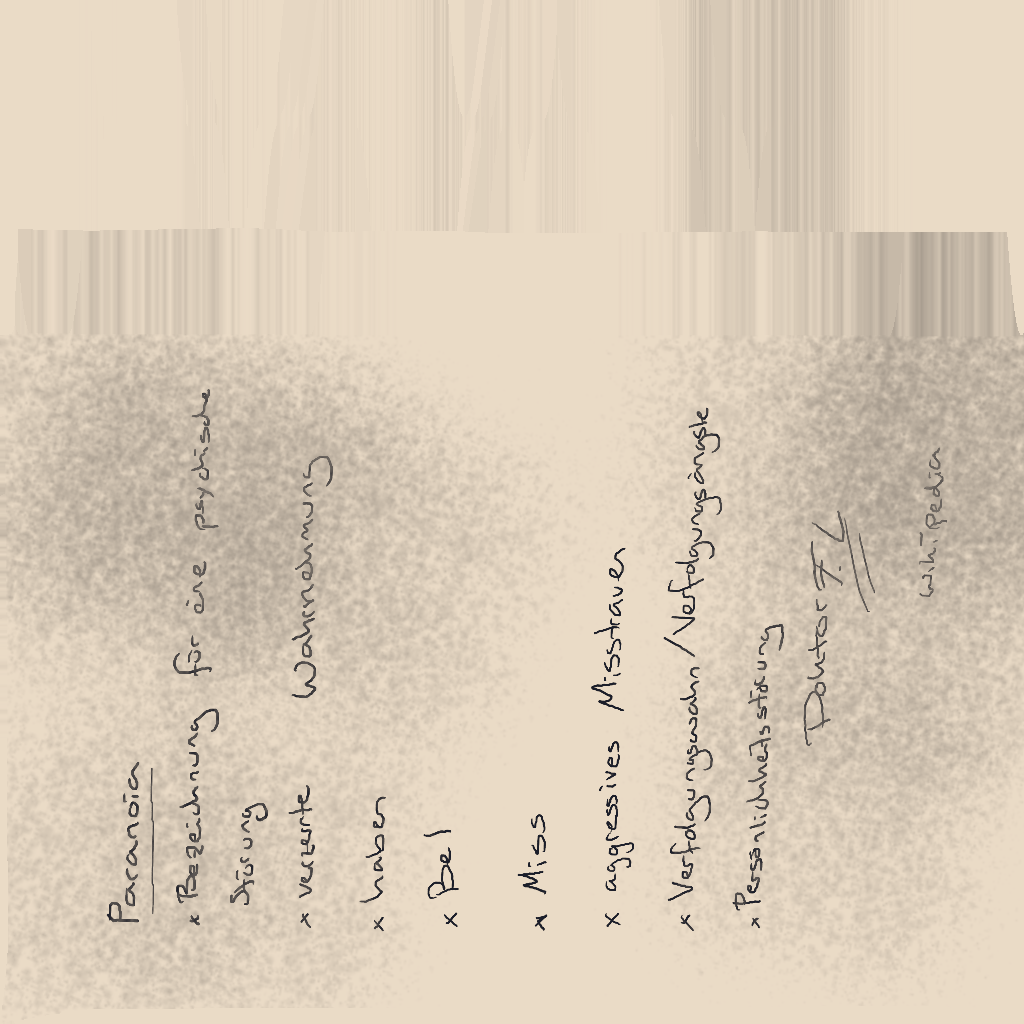 Paranoia
x Bezeichnung für eine psychische
Störung
x verzerrte Wahrnehmung
x haben
x Bel
x Miss
x aggressives Misstrauen
x Verfolgungswahn/Verfolgungsängste
x Persönlichkeitsstörung
Doktor F. L
Wikipedia